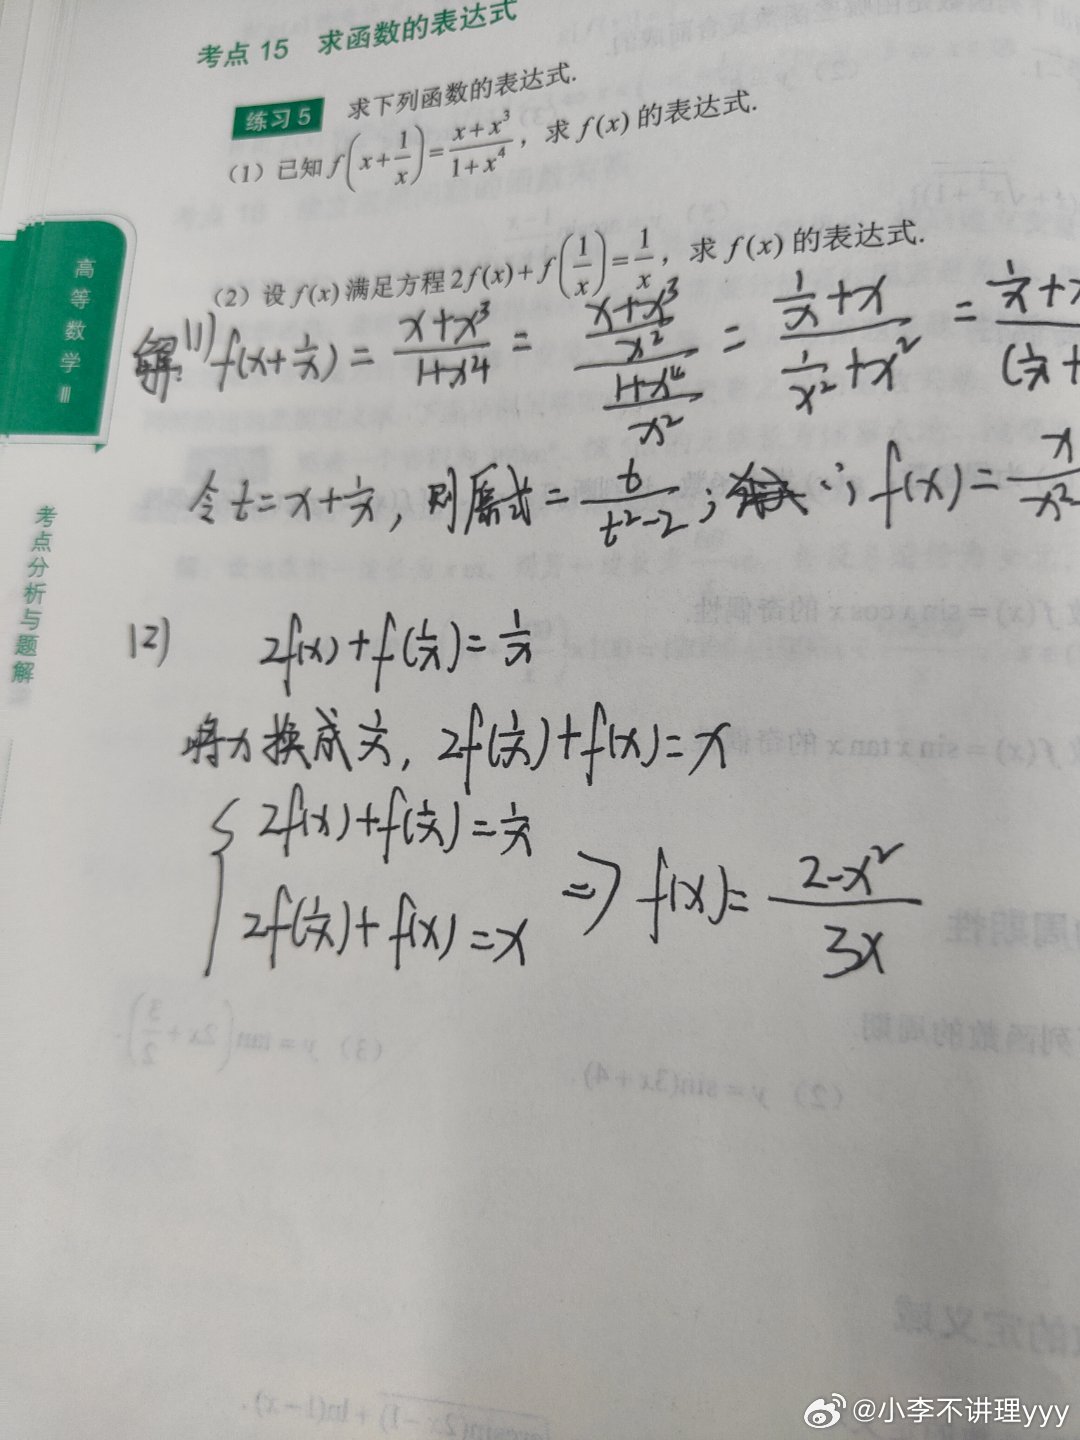 考点 15 求函数的表达式
练习 5 求下列函数的表达式.
(1) 已知 f(x+1/x)=(x+x³)/(1+x⁴)，求 f(x) 的表达式.
(2) 设 f(x) 满足方程 2f(x)+f(1/x)=1/x，求 f(x) 的表达式.
解:(1) f(x+1/x) = (x+x³)/(1+x⁴) = ((x+x³)/x²)/((1+x⁴)/x²) = (1/x+x)/(1/x²+x²) = (1/x+x)/(1/x+
令 t=x+1/x，则原式=t/(t²-2); ∴ f(x)=x/(x²-
(2) 2f(x)+f(1/x)=1/x
将x换成1/x，2f(1/x)+f(x)=x
{2f(x)+f(1/x)=1/x
2f(1/x)+f(x)=x ⇒ f(x)=(2-x²)/(3x)
高等数学Ⅲ
考点分析与题解
@小李不讲理yyy